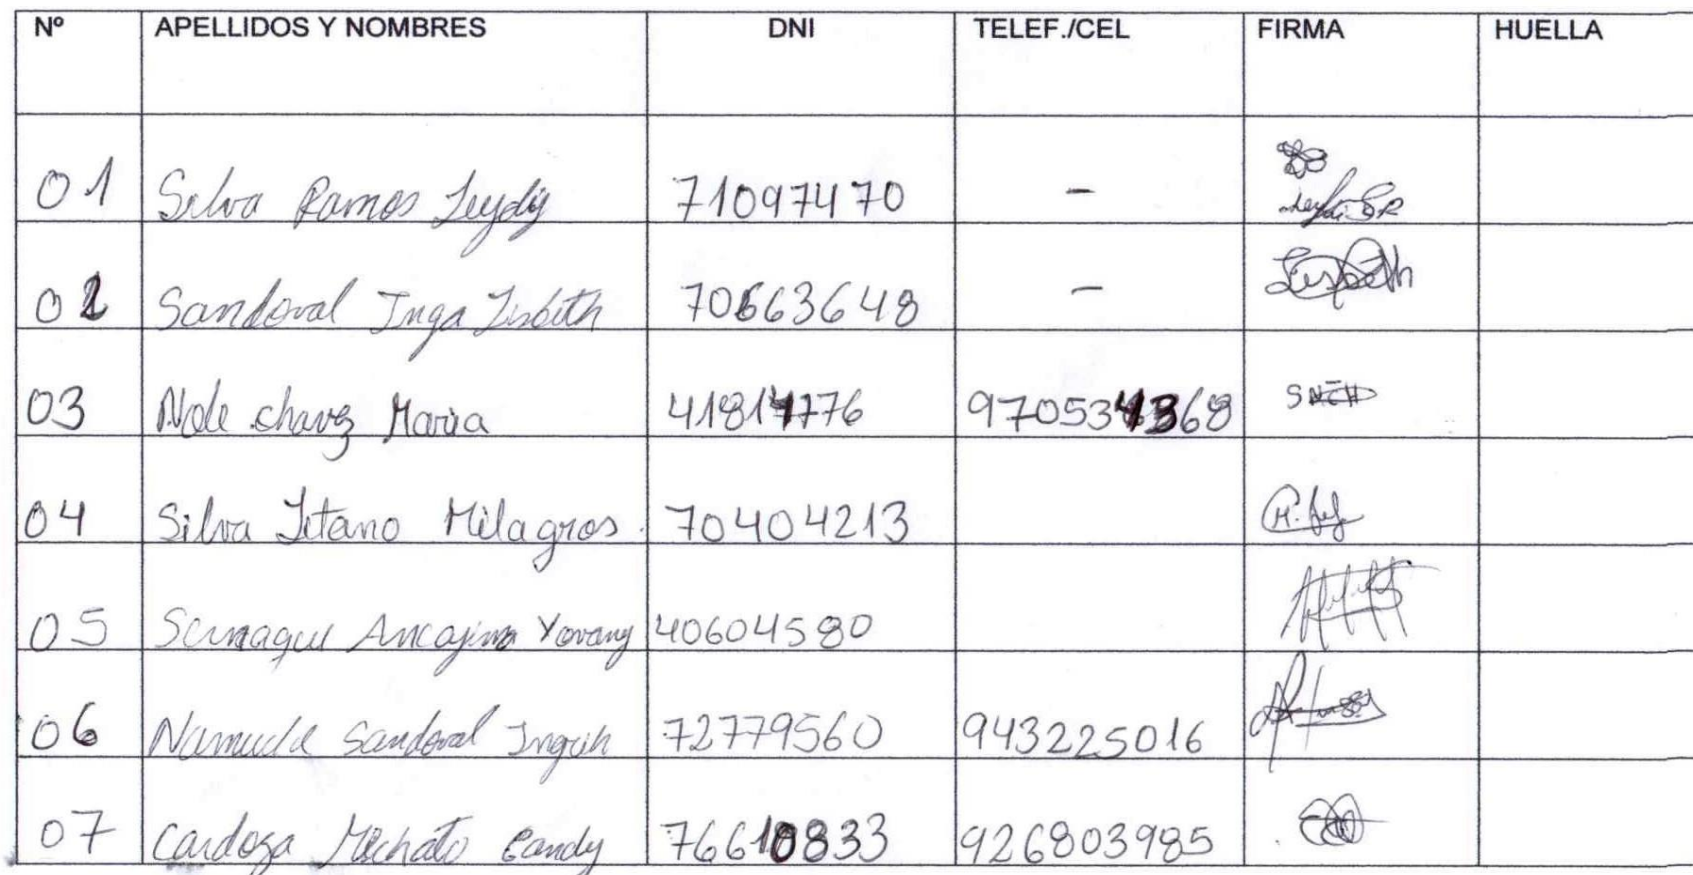 Nº APELLIDOS Y NOMBRES DNI TELEF./CEL FIRMA HUELLA
01 Silva Ramos Leydy 71097470 -
02 Sandoval Inga Lisbith 70663648 - Lisbeth
03 Nole chavez Maria 41817776 970534368
04 Silva Litano Milagros 70404213
05 Sunaque Ancajima Yovany 40604580
06 Namuche Sandoval Ingrih 72779560 943225016
07 Cardoza Machato Candy 76610833 926803985